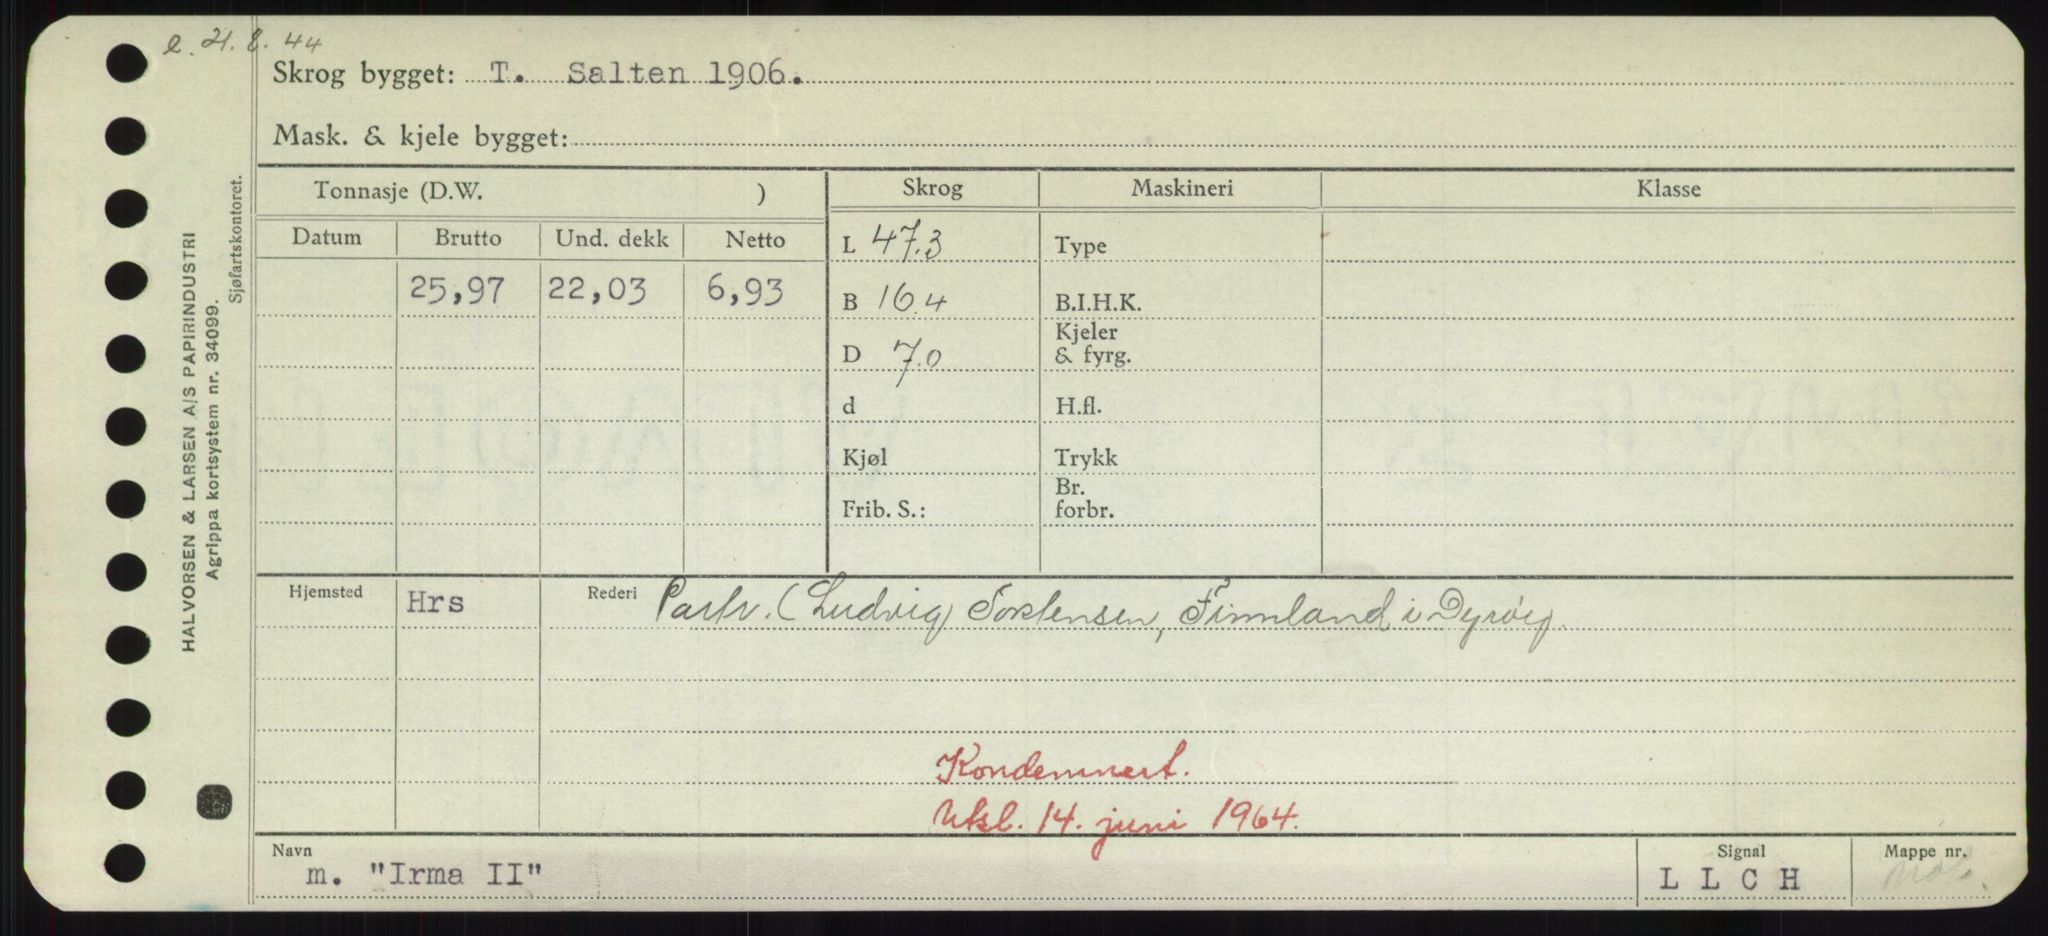 e. 21. 8. 44
Skrog bygget: T. Salten 1906.
Mask. & kjele bygget:
HALVORSEN & LARSEN A/S PAPIRINDUSTRI
Agrippa kortsystem nr. 34099.
Sjøfartskontoret.
Tonnasje (D.W. ) Skrog Maskineri Klasse
Datum Brutto Und. dekk Netto L 47.3 Type
25,97 22,03 6,93 B 16.4 B.I.H.K.
D 7.0 Kjeler & fyrg.
d H.fl.
Kjøl Trykk
Frib. S.: Br. forbr.
Hjemsted Hrs Rederi Partr. (Ludvig Torstensen, Finnland i Dyrøy
Kondemnert.
Utsl. 14. juni 1964.
Navn Signal Mappe nr.
m. "Irma II" L L C H